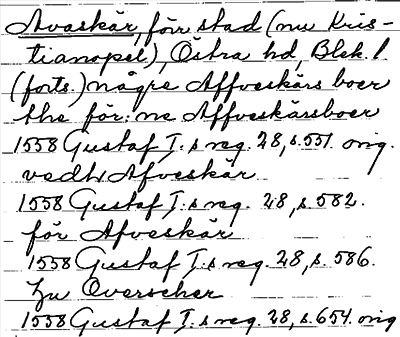 Avaskär, förr stad (nu Kris-
tianopel), Östra hd, Blek. l
(forts.) någre Affveskärs boer
the för:ne Affveskärsboer
1558 Gustaf I:s reg. 28, s. 551. orig.
vedh Afveskär
1558 Gustaf I:s reg. 28, s. 582.
för Afveskär
1558 Gustaf I:s reg. 28, s. 586.
Zu Overscher
1558 Gustaf I:s reg. 28, s. 654. orig